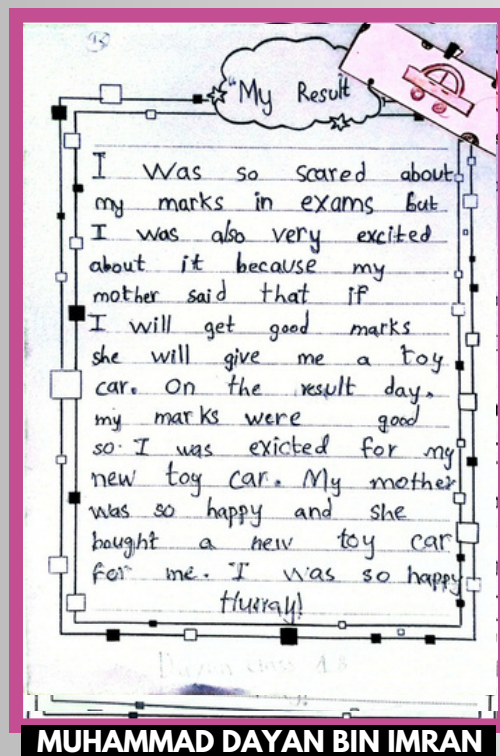 "My Result
I was so scared about
my marks in exams but
I was also very excited
about it because my
mother said that if
I will get good marks
she will give me a toy
car. On the result day,
my marks were good
so. I was exicted for my
new toy car. My mother
was so happy and she
bought a new toy car
for me. I was so happy
Hurray!
MUHAMMAD DAYAN BIN IMRAN